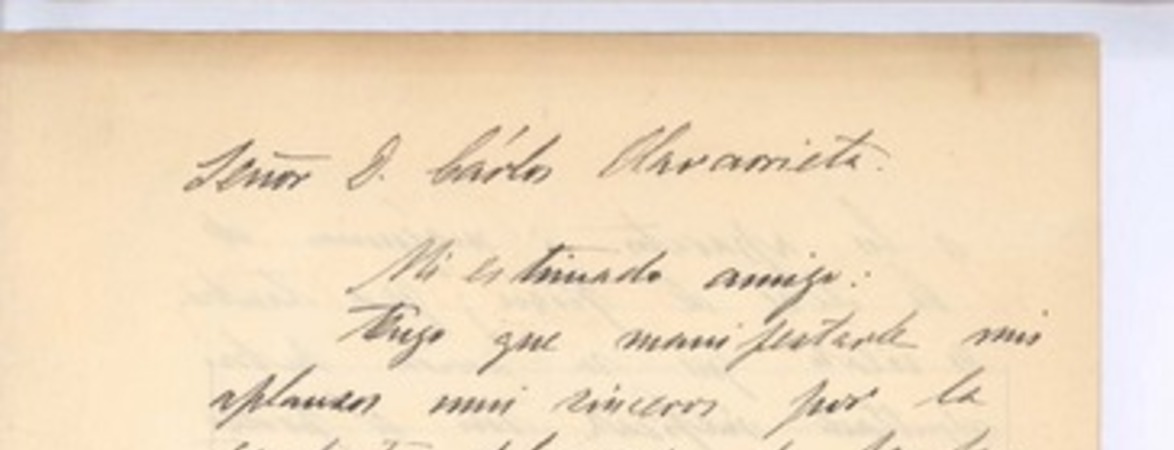 Señor D. Cárlos Olavarrieta.
Mi estimado amigo:
Tengo que manifestarle mis
aplausos mui sinceros por la